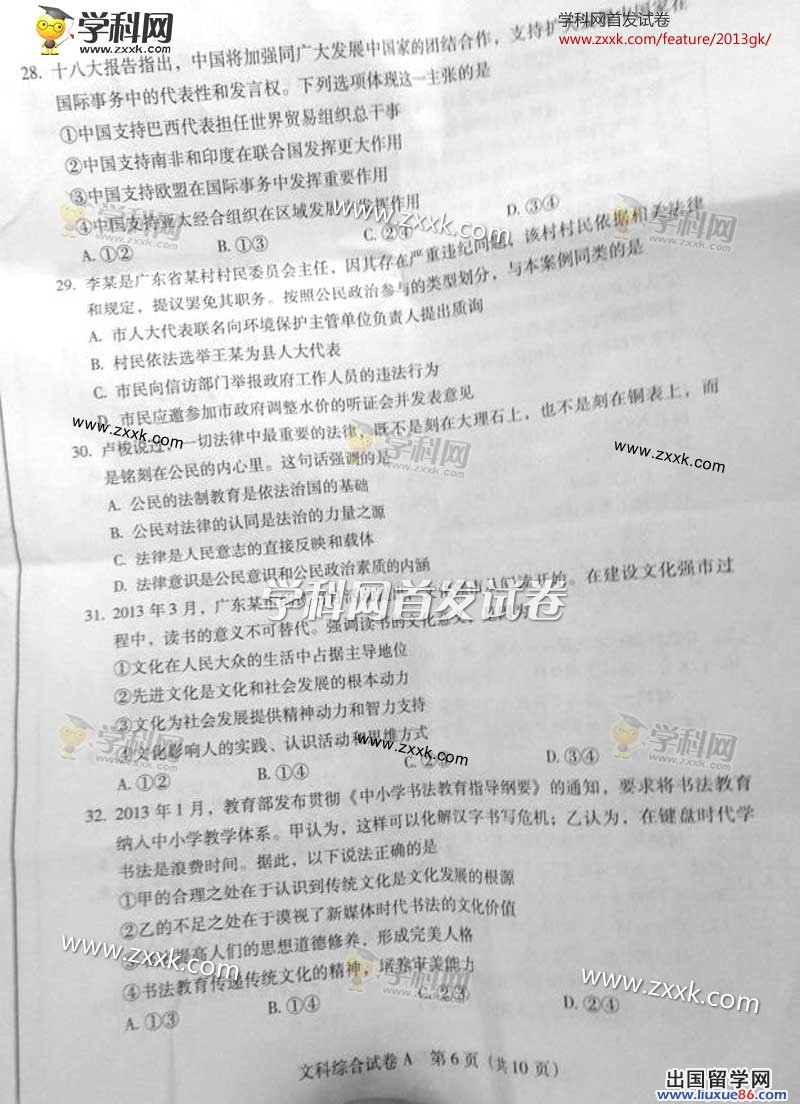 学科网
www.zxxk.com
学科网首发试卷
www.zxxk.com/feature/2013gk/
28. 十八大报告指出，中国将加强同广大发展中国家的团结合作，支持扩大
国际事务中的代表性和发言权。下列选项体现这一主张的是
①中国支持巴西代表担任世界贸易组织总干事
②中国支持南非和印度在联合国发挥更大作用
③中国支持欧盟在国际事务中发挥重要作用
④中国支持亚太经合组织在区域发展 发挥作用
A. ①② B. ①③ C. ②④ D. ③④
29. 李某是广东省某村村民委员会主任，因其存在严重违纪问题，该村村民依据相关法律
和规定，提议罢免其职务。按照公民政治参与的类型划分，与本案例同类的是
A. 市人大代表联名向环境保护主管单位负责人提出质询
B. 村民依法选举王某为县人大代表
C. 市民向信访部门举报政府工作人员的违法行为
D. 市民应邀参加市政府调整水价的听证会并发表意见
30. 卢梭说过，一切法律中最重要的法律，既不是刻在大理石上，也不是刻在铜表上，而
是铭刻在公民的内心里。这句话强调的是
A. 公民的法制教育是依法治国的基础
B. 公民对法律的认同是法治的力量之源
C. 法律是人民意志的直接反映和载体
D. 法律意识是公民意识和公民政治素质的内涵
31. 2013 年 3 月，广东某 开始。在建设文化强市过
程中，读书的意义不可替代。强调读书的文化意义
①文化在人民大众的生活中占据主导地位
②先进文化是文化和社会发展的根本动力
③文化为社会发展提供精神动力和智力支持
④文化影响人的实践、认识活动和思维方式
A. ①② B. ①③ C. ②③ D. ③④
32. 2013 年 1 月，教育部发布贯彻《中小学书法教育指导纲要》的通知，要求将书法教育
纳入中小学教学体系。甲认为，这样可以化解汉字书写危机；乙认为，在键盘时代学
书法是浪费时间。据此，以下说法正确的是
①甲的合理之处在于认识到传统文化是文化发展的根源
②乙的不足之处在于漠视了新媒体时代书法的文化价值
③ 提高人们的思想道德修养，形成完美人格
④书法教育传递传统文化的精神，培养审美能力
A. ①③ B. ①④ C. ②③ D. ②④
文科综合试卷 A 第 6 页（共 10 页）
学科网首发试卷
出国留学网
www.liuxue86.com